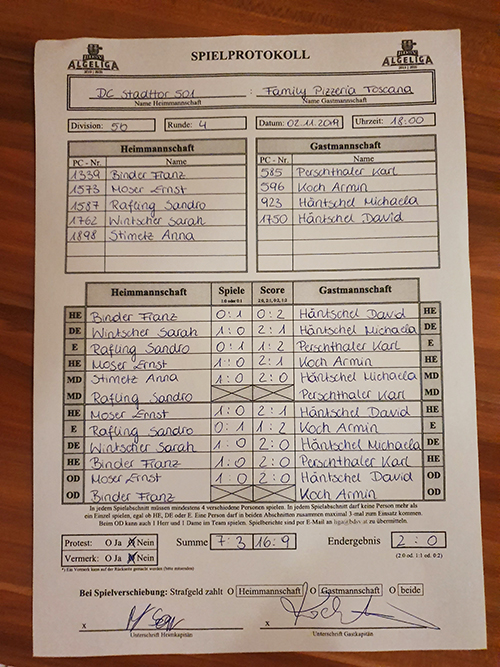 ALGELIGA SPIELPROTOKOLL ALGELIGA
DC Stadttor 501 : Family Pizzeria Toscana
Name Heimmannschaft Name Gastmannschaft
Division: 5b Runde: 4 Datum: 02.11.2019 Uhrzeit: 18:00
Heimmannschaft Gastmannschaft
PC - Nr. Name PC - Nr. Name
1339 Binder Franz 585 Perschthaler Karl
1573 Moser Ernst 596 Koch Armin
1587 Rafling Sandro 923 Häntschel Michaela
1762 Wintscher Sarah 1750 Häntschel David
1898 Stimetz Anna
Heimmannschaft Spiele Score Gastmannschaft
1:0 oder 0:1 2:0, 2:1, 0:2, 1:2
HE Binder Franz 0:1 0:2 Häntschel David HE
DE Wintscher Sarah 1:0 2:1 Häntschel Michaela DE
E Rafling Sandro 0:1 1:2 Perschthaler Karl E
HE Moser Ernst 1:0 2:1 Koch Armin HE
MD Stimetz Anna 1:0 2:0 Häntschel Michaela MD
MD Rafling Sandro Perschthaler Karl MD
HE Moser Ernst 1:0 2:1 Häntschel David HE
E Rafling Sandro 0:1 1:2 Koch Armin E
DE Wintscher Sarah 1:0 2:0 Häntschel Michaela DE
HE Binder Franz 1:0 2:0 Perschthaler Karl HE
OD Moser Ernst 1:0 2:0 Häntschel David OD
OD Binder Franz Koch Armin OD
In jedem Spielabschnitt müssen mindestens 4 verschiedene Personen spielen. In jedem Spielabschnitt darf keine Person mehr als
ein Einzel spielen, egal ob HE, DE oder E. Eine Person darf in beiden Abschnitten zusammen maximal 3-mal zum Einsatz kommen.
Beim OD kann auch 1 Herr und 1 Dame im Team spielen. Spielberichte sind per E-Mail an liga@bdsv.at zu übermitteln.
Protest: O Ja O Nein Summe 7:3 16:9 Endergebnis 2:0
Vermerk: O Ja O Nein (2:0 od. 1:1 od. 0:2)
*) Ein Vermerk kann auf der Rückseite gemacht werden (bitte unterzeichnen)
Bei Spielverschiebung: Strafgeld zahlt O Heimmannschaft O Gastmannschaft O beide
x x
Unterschrift Heimkapitän Unterschrift Gastkapitän